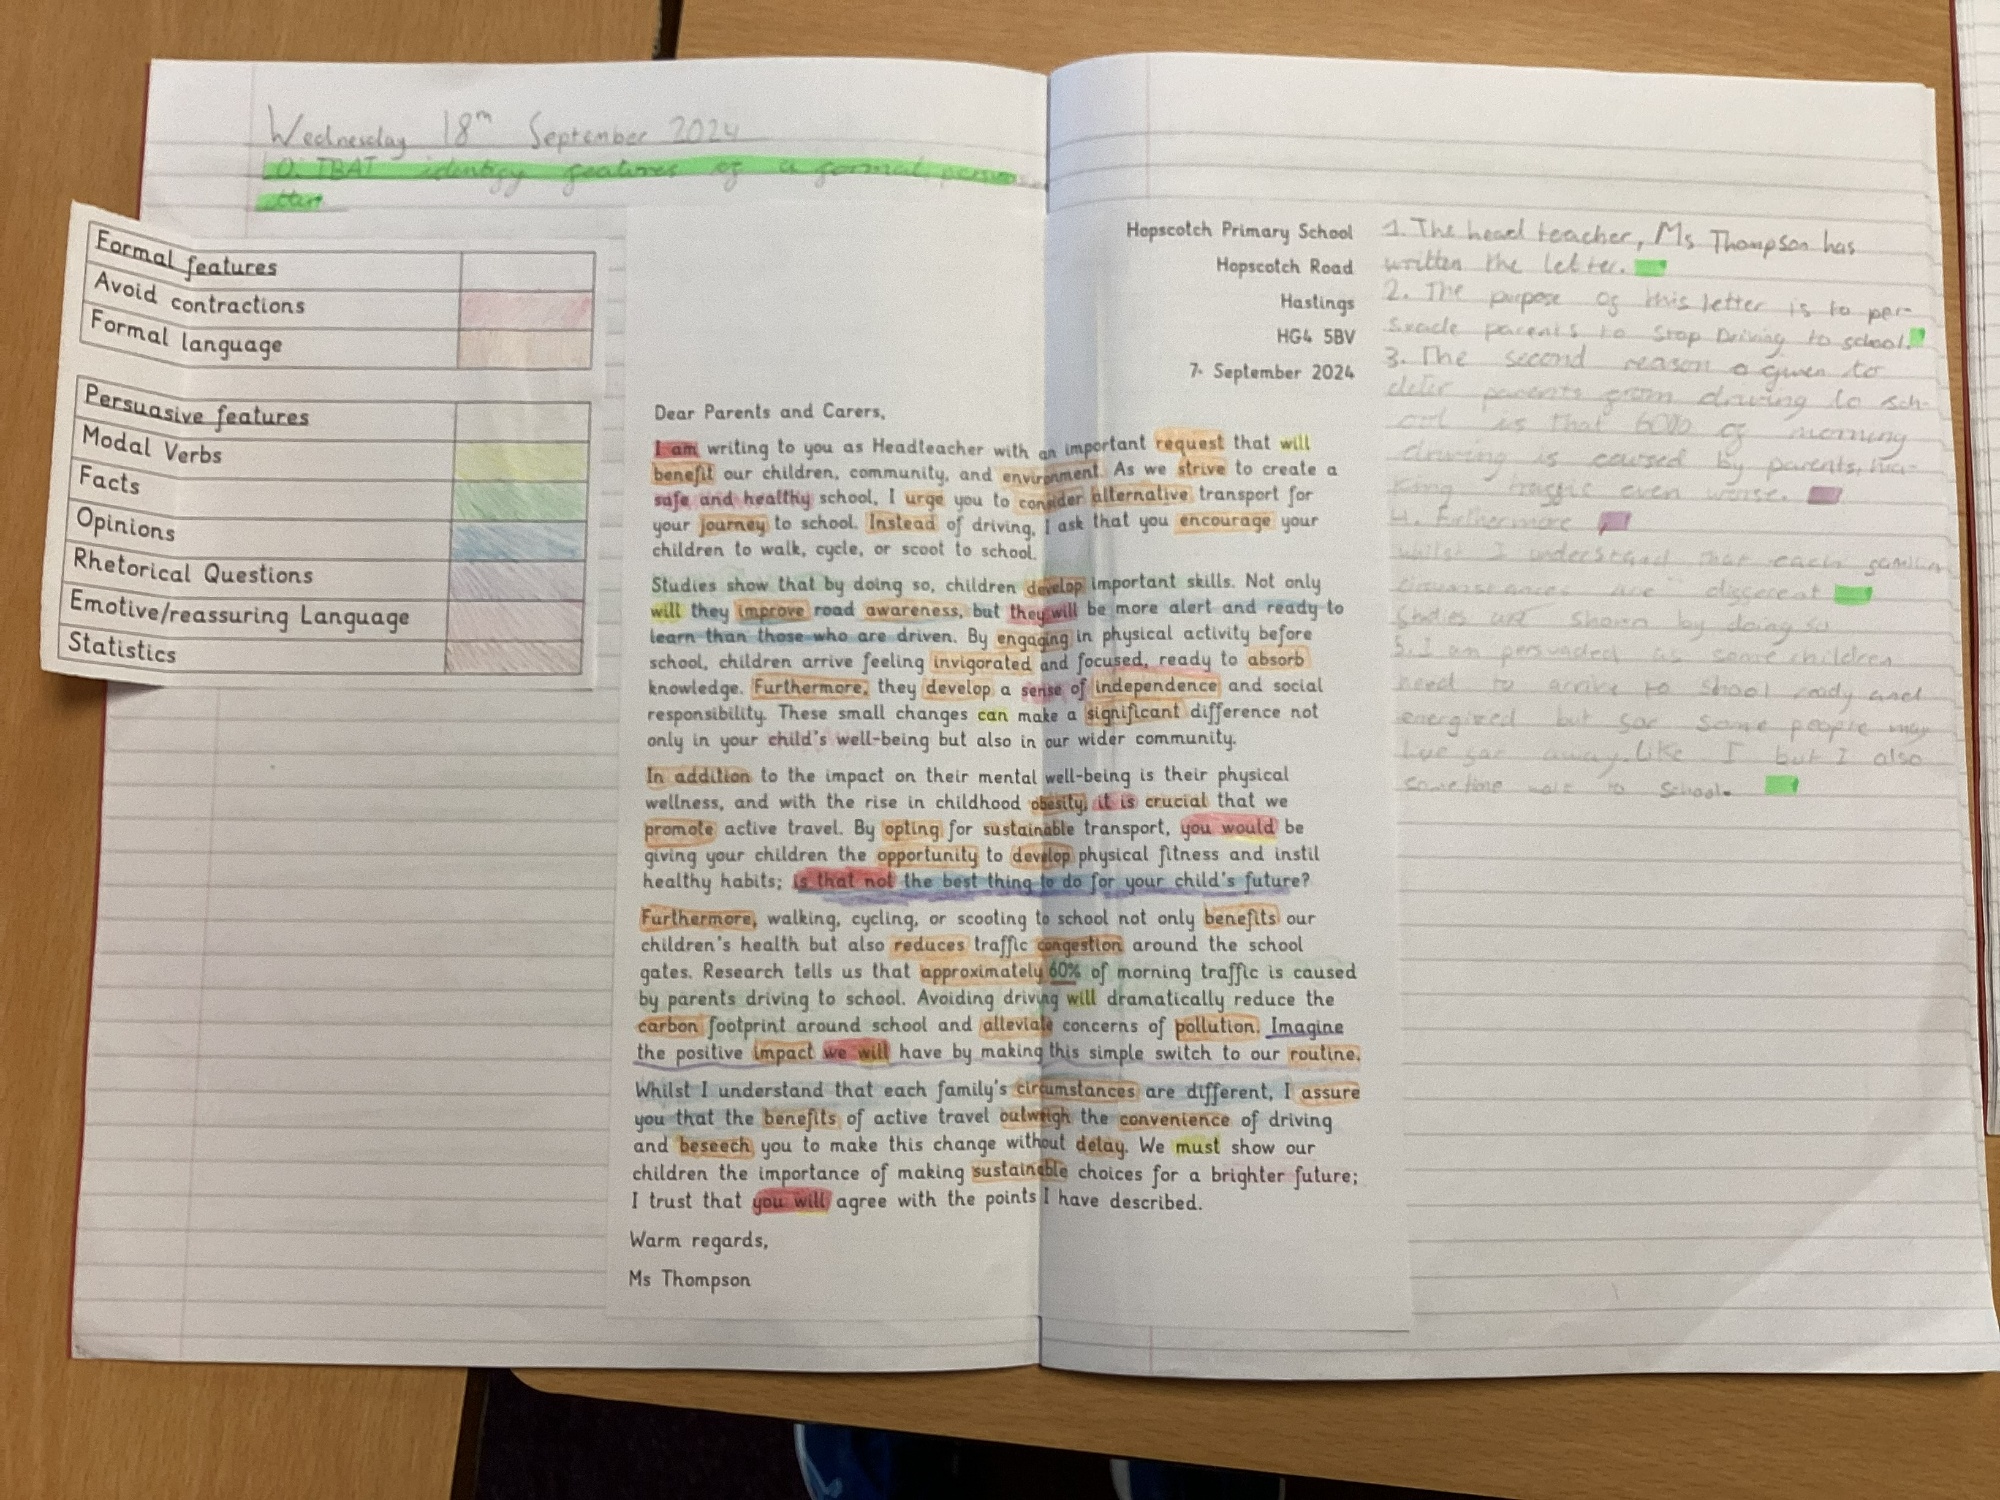 Wednesday 18th September 2024
LO: TBAT identify features of a formal persuasive
letter
Formal features
Avoid contractions
Formal language
Persuasive features
Modal Verbs
Facts
Opinions
Rhetorical Questions
Emotive/reassuring Language
Statistics
Hopscotch Primary School
Hopscotch Road
Hastings
HG4 5BV
7. September 2024
Dear Parents and Carers,
I am writing to you as Headteacher with an important request that will
benefit our children, community, and environment. As we strive to create a
safe and healthy school, I urge you to consider alternative transport for
your journey to school. Instead of driving, I ask that you encourage your
children to walk, cycle, or scoot to school.
Studies show that by doing so, children develop important skills. Not only
will they improve road awareness, but they will be more alert and ready to
learn than those who are driven. By engaging in physical activity before
school, children arrive feeling invigorated and focused, ready to absorb
knowledge. Furthermore, they develop a sense of independence and social
responsibility. These small changes can make a significant difference not
only in your child's well-being but also in our wider community.
In addition to the impact on their mental well-being is their physical
wellness, and with the rise in childhood obesity, it is crucial that we
promote active travel. By opting for sustainable transport, you would be
giving your children the opportunity to develop physical fitness and instil
healthy habits; is that not the best thing to do for your child's future?
Furthermore, walking, cycling, or scooting to school not only benefits our
children's health but also reduces traffic congestion around the school
gates. Research tells us that approximately 60% of morning traffic is caused
by parents driving to school. Avoiding driving will dramatically reduce the
carbon footprint around school and alleviate concerns of pollution. Imagine
the positive impact we will have by making this simple switch to our routine.
Whilst I understand that each family's circumstances are different, I assure
you that the benefits of active travel outweigh the convenience of driving
and beseech you to make this change without delay. We must show our
children the importance of making sustainable choices for a brighter future;
I trust that you will agree with the points I have described.
Warm regards,
Ms Thompson
1. The head teacher, Ms Thompson has
written the letter.
2. The purpose of this letter is to per-
suade parents to stop Driving to school.
3. The second reason given to
deter parents from driving to sch-
ool is that 60% of morning
driving is caused by parents, ma-
king traffic even worse.
4. Furthermore
whilst I understand that each family
circumstances are different
Studies are shown by doing so
5. I am persuaded as some children
need to arrive to school ready and
energized but for some people may
live far away. Like I but I also
sometime walk to school.